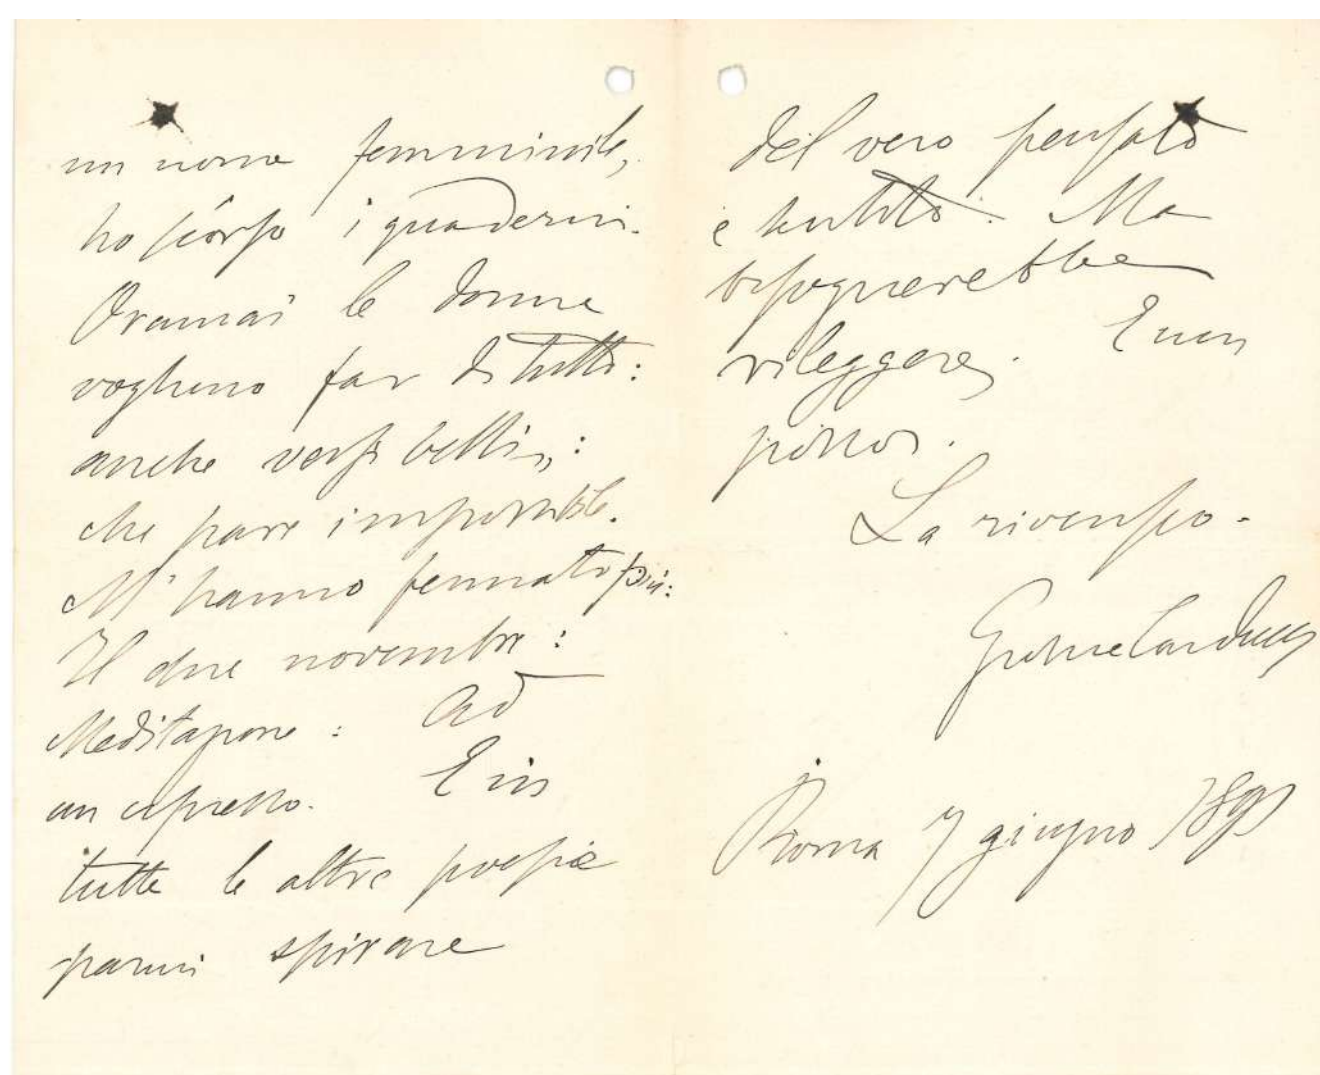 un nome femminile,
ho scorso i quaderni.
Oramai le donne
vogliono far di tutto:
anche versi belli,:
che pare impossibile.
M'hanno fermato più:
Il due novembre:
Meditazione: Ad
un cipresso. E in
tutte le altre poesie
parmi spirare
del vero pensato
e sentito. Ma
bisognerebbe
rileggere. E non
posso.
La riverisco.
Giosue Carducci
Roma 7 giugno